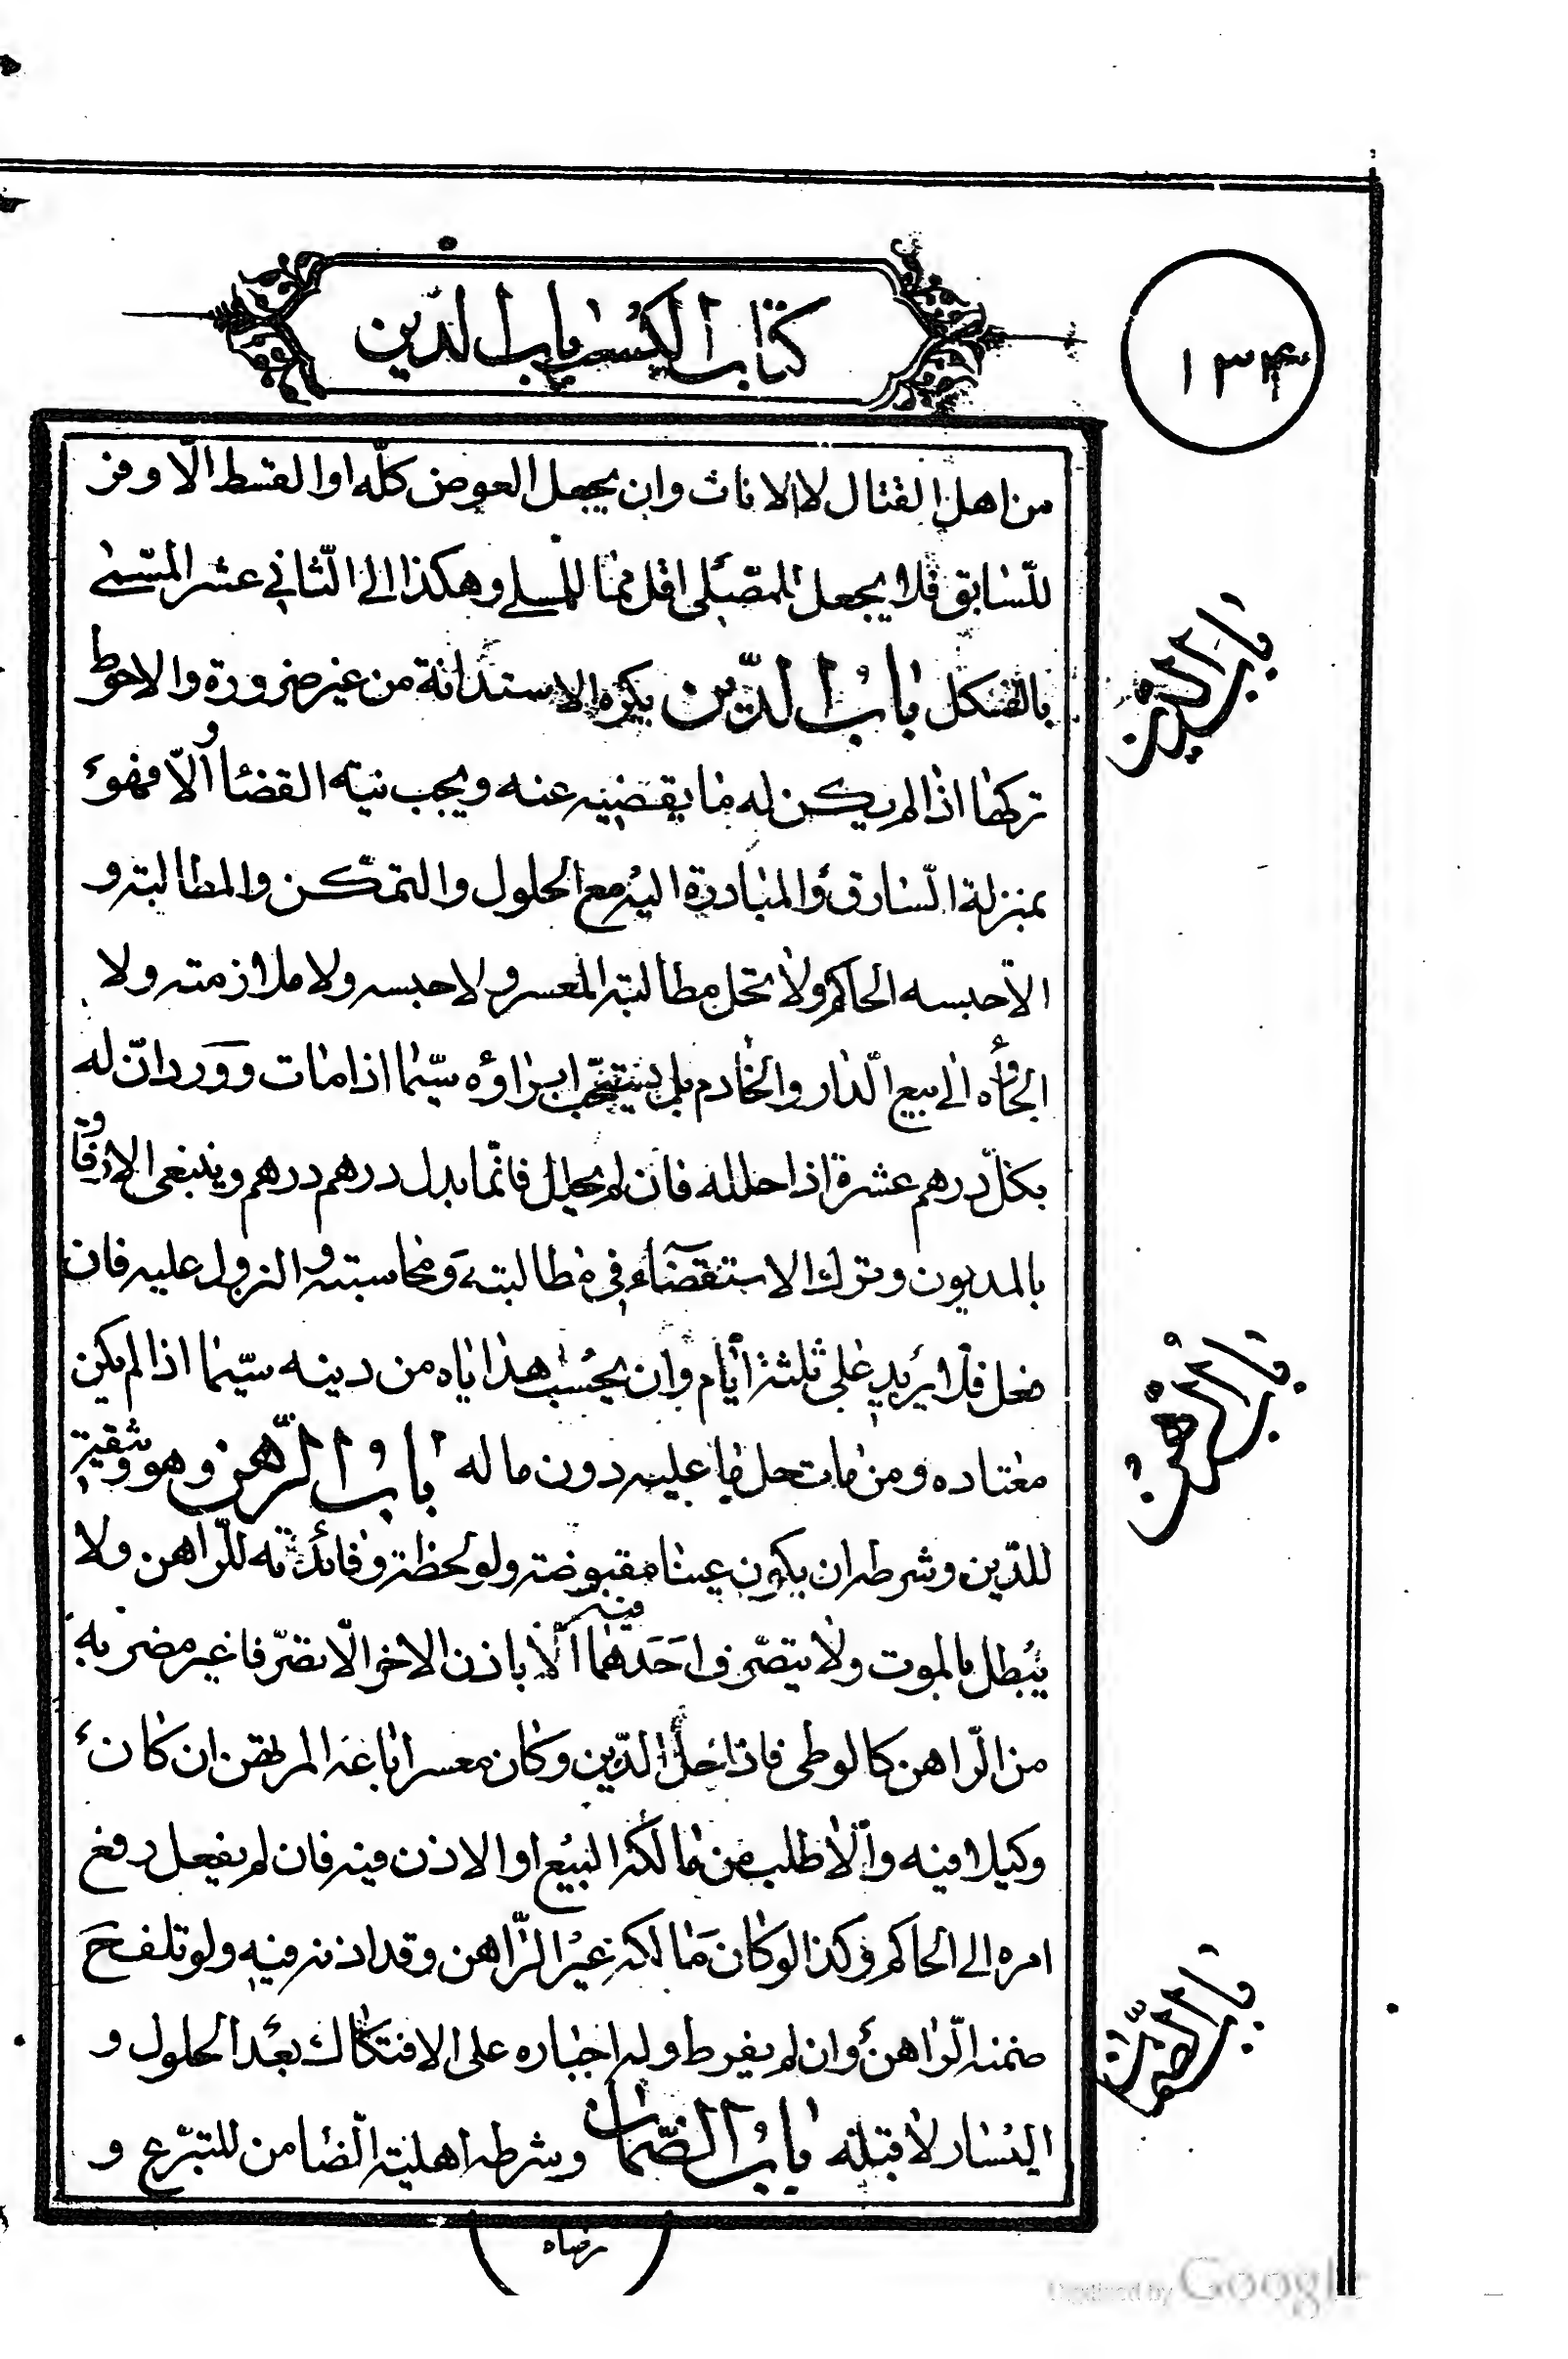 كتاب الكسب باب الدّين
١٣٤
من اهل القتال لا الاناث وان يجعل العوض كلّه او القسط الّاوفر
للسّابق فلا يجعل للمصلّى اقل ممّا للمسلى وهكذا الى الثّانى عشر المسّمى
بالفسكل باب الدّين يكره الاستدانة من غير ضرورة والاحوط
تركها اذا لم يكن له ما يقضيه عنه ويجب نيّة القضاء والّا فهو
بمنزلة السّارق والمبادرة اليه مع الحلول والتمكّن والمطالبة و
الّا حبسه الحاكم ولا تحل مطالبة المعسر ولا حبسه ولا ملازمته ولا
الجاؤه الى بيع الدّار والخادم بل يستحّب ابراؤه سيّما اذا مات وورد انّ له
بكلّ درهم عشرة اذا حلله فان لم يحلل فانّما بدل درهم درهم وينبغى الارفاق
بالمديون وترك الاستقضاء فى مطالبته ومحاسبته والنزول عليه فان
فعل فلا يزيد على ثلثة ايّام وان يحسب هداياه من دينه سيّما اذا لم يكن
معتاده ومن مات حل ما عليه دون ما له باب الرّهن وهو وثيقة
للدّين وشرطه ان يكون عينا مقبوضة ولو لحظة وفائدته للرّاهن ولا
يبطل بالموت ولا يتصّرف احدهما فيه الّا باذن الاخر الّا تصّرفا غير مضر به
من الّراهن كالوطى فاذا حلّ الدّين وكان معسرا باعه المرتهن ان كان
وكيلا فيه والّا طلب من مالكه البيع او الاذن فيه فان لم يفعل رفع
امره الى الحاكم وكذا لو كان مالكه غير الرّاهن وقد اذنه فيه ولو تلف ح
ضمنه الّراهن وان لم يفرط وله اجباره على الافتكاك بعد الحلول و
اليسار لا قبله باب الضّمان وشرطه اهليّة الّضامن للتبرّع و
رضاه
باب الدين
باب الرهن
باب الضّمان
Digitized by Google